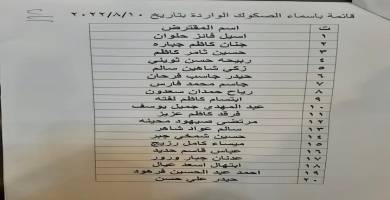 قائمة باسماء الصكوك الواردة بتاريخ ٢٠٢٢/٨/١٠
ت اسم المقترض
١ اسيل فائز حلوان
٢ جنان كاظم جباره
٣ حسين ثامر كاظم
٤ ربيحه حسن ثويني
٥ زكي شاهين سالم
٦ حيدر جاسب فرحان
٧ جاسم محمد فارس
٨ رباح حمدان سعدون
٩ ابتسام كاظم لفته
١٠ عبد المهدي جميل يوسف
١١ فرقد كاظم عزيز
١٢ مرتضى صيهود محينه
١٣ سالم عواد شاهر
١٤ حسين شمخي جبر
١٥ ميساء كامل رزيج
١٦ عباس قاسم حديد
١٧ عدنان جبار ورور
١٨ ابتهال اسعد عيال
١٩ احمد عبد الحسين فرهود
٢٠ حيدر علي حسن